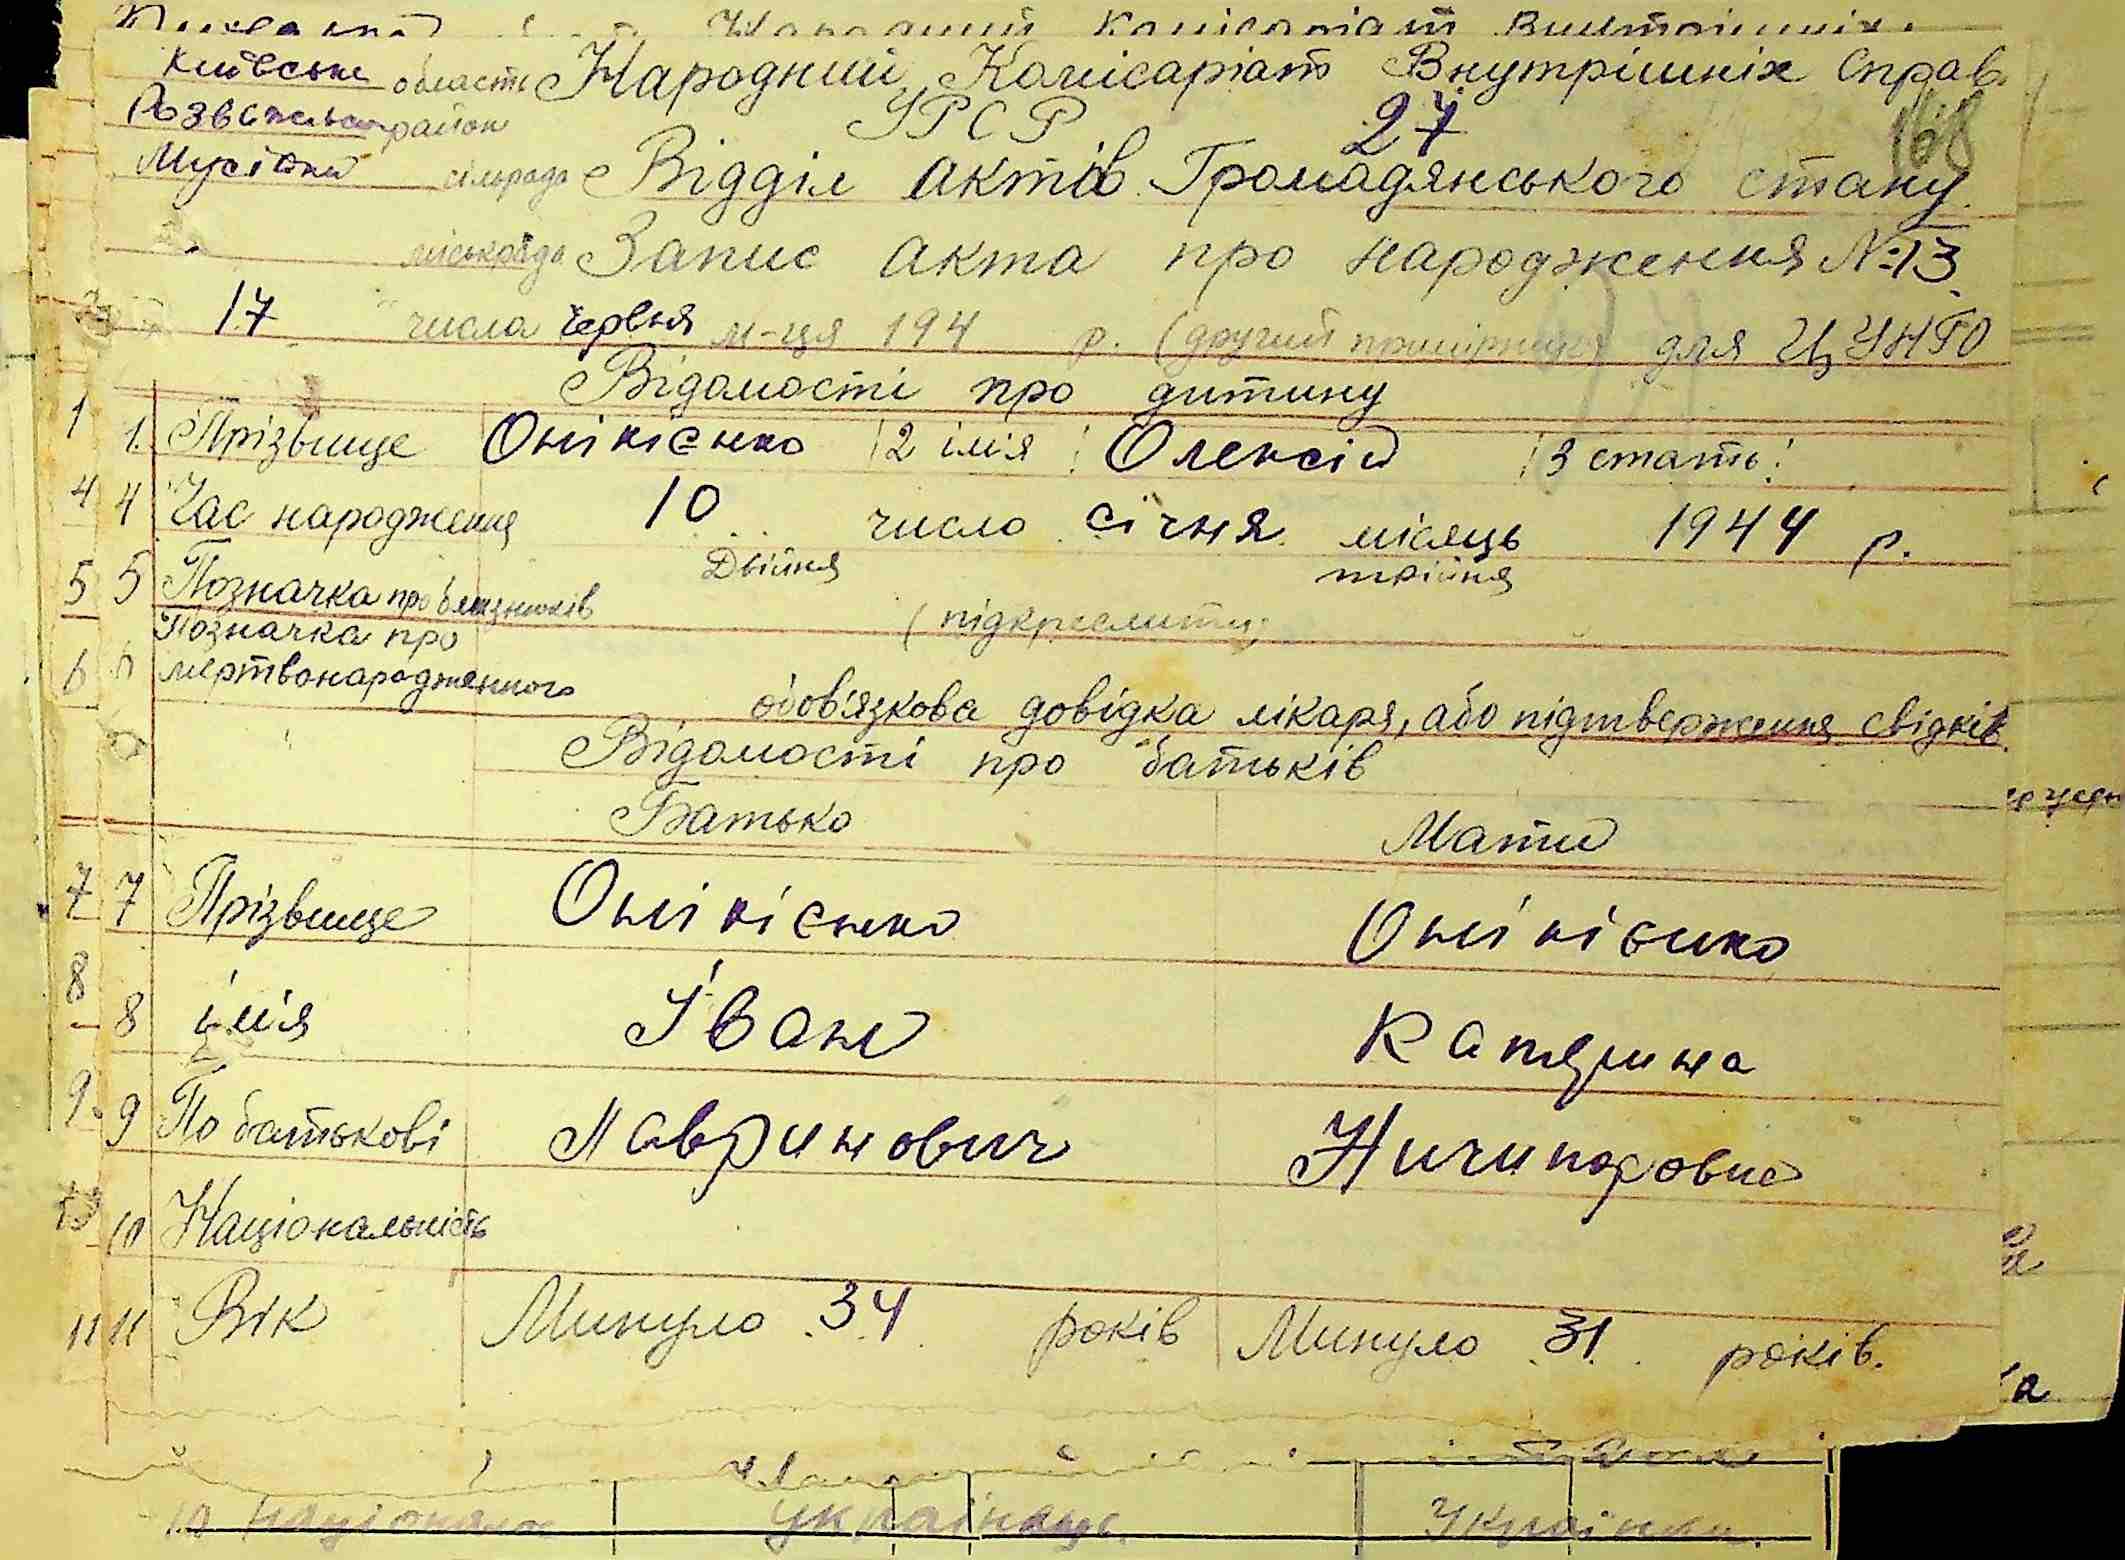 Народний Комісаріат Внутрішніх
Київська область Народний Комісаріат Внутрішніх Справ
район УРСР 27 168
сільрада Відділ актів Громадянського стану
міськрада Запис акта про народження №13
17 числа червня м-ця 194 р. (другий примірник) для ЦУНГО
Відомості про дитину
1 1. Прізвище Онікієнко 2 імія Олексій 3 стать:
4 4 Час народження 10 число січня місяць 1944 р.
Двійня трійня
5 5 Позначка про близнюків (підкреслити)
Позначка про
6 6 мертвонародженного обов'язкова довідка лікаря, або підтвердження свідків.
Відомості про батьків
Батько Мати
7 7 Прізвище Онікієнко Онікієнко
8 8 імія Іван Катярина
9. 9 По батькові Лавринович Ничипоровна
10 10 Національність
11 11 Вік Минуло 34 років Минуло 31 років.
10 українець Українка